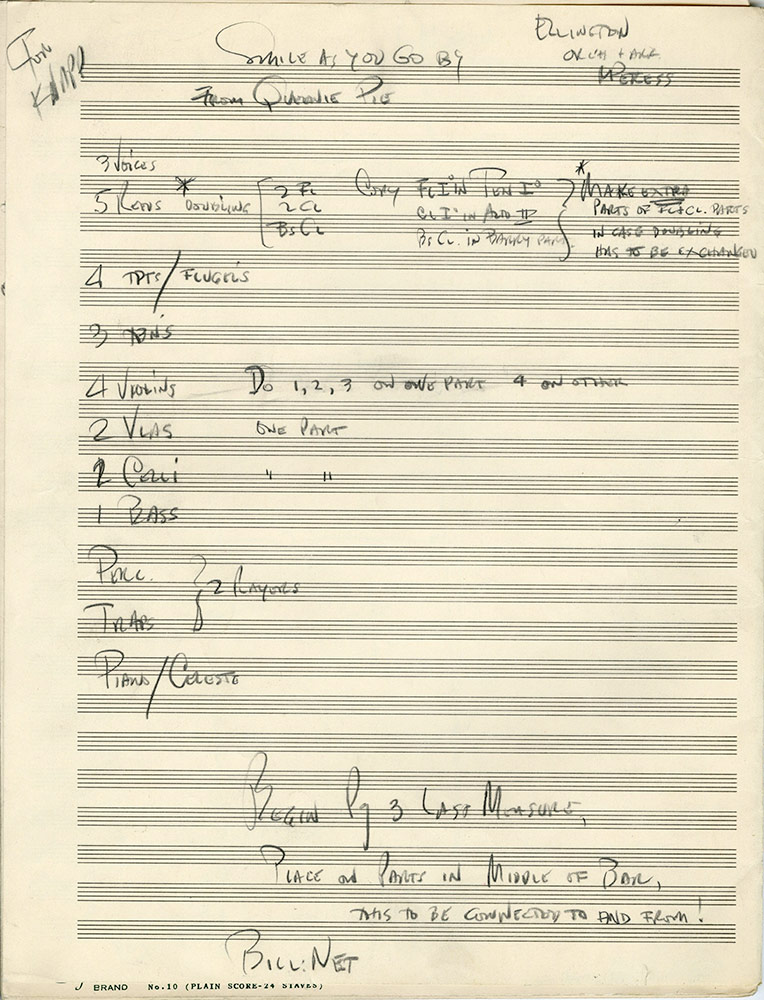 Tom
Knapp
Smile As You Go By
From Queenie Pie
Ellington
Orch + Arr.
MPeress
3 Voices
5 Reeds * Doubling [ 2 Fl
2 Cl
Bs Cl
Copy Fl I° in Ten I°
Cl I° in Alto II
Bs Cl. in Barry part
* Make extra
parts of Fl + Cl. parts
in case doubling
has to be exchanged
4 Tpts/Flugels
3 Tbns
4 Violins Do 1, 2, 3 on one part 4 on other
2 Vlas one part
2 Celli " "
1 Bass
Perc.
Traps } 2 Players
Piano/Celeste
Begin Pg 3 Last Measure,
Place on Parts in Middle of Bar,
this to be connected to and from!
Bill: Net
J BRAND No. 10 (PLAIN SCORE-24 STAVES)